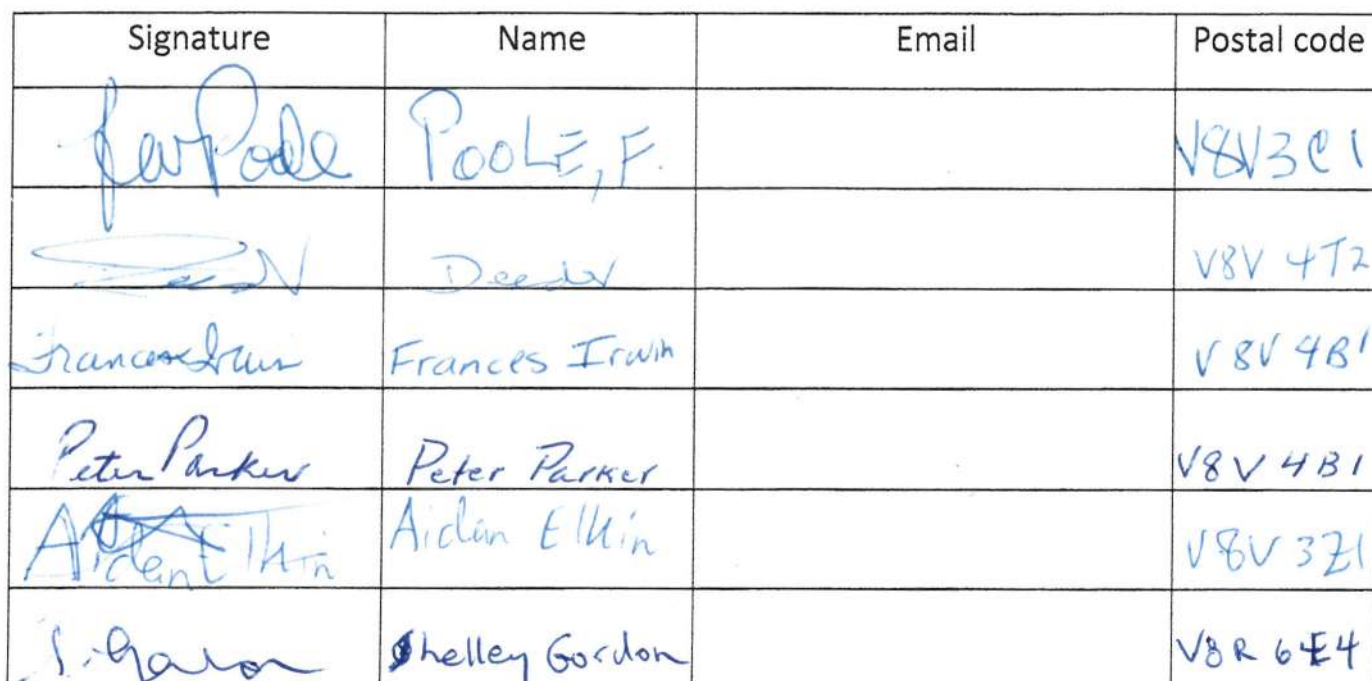 Signature Name Email Postal code
Poole POOLE, F. V8V3C1
V8V 4T2
Frances Irwin Frances Irwin V8V 4B1
Peter Parker Peter Parker V8V 4B1
Aidan Elkin Aidan Elkin V8V 3Z1
Shelley Gordon V8R 6E4